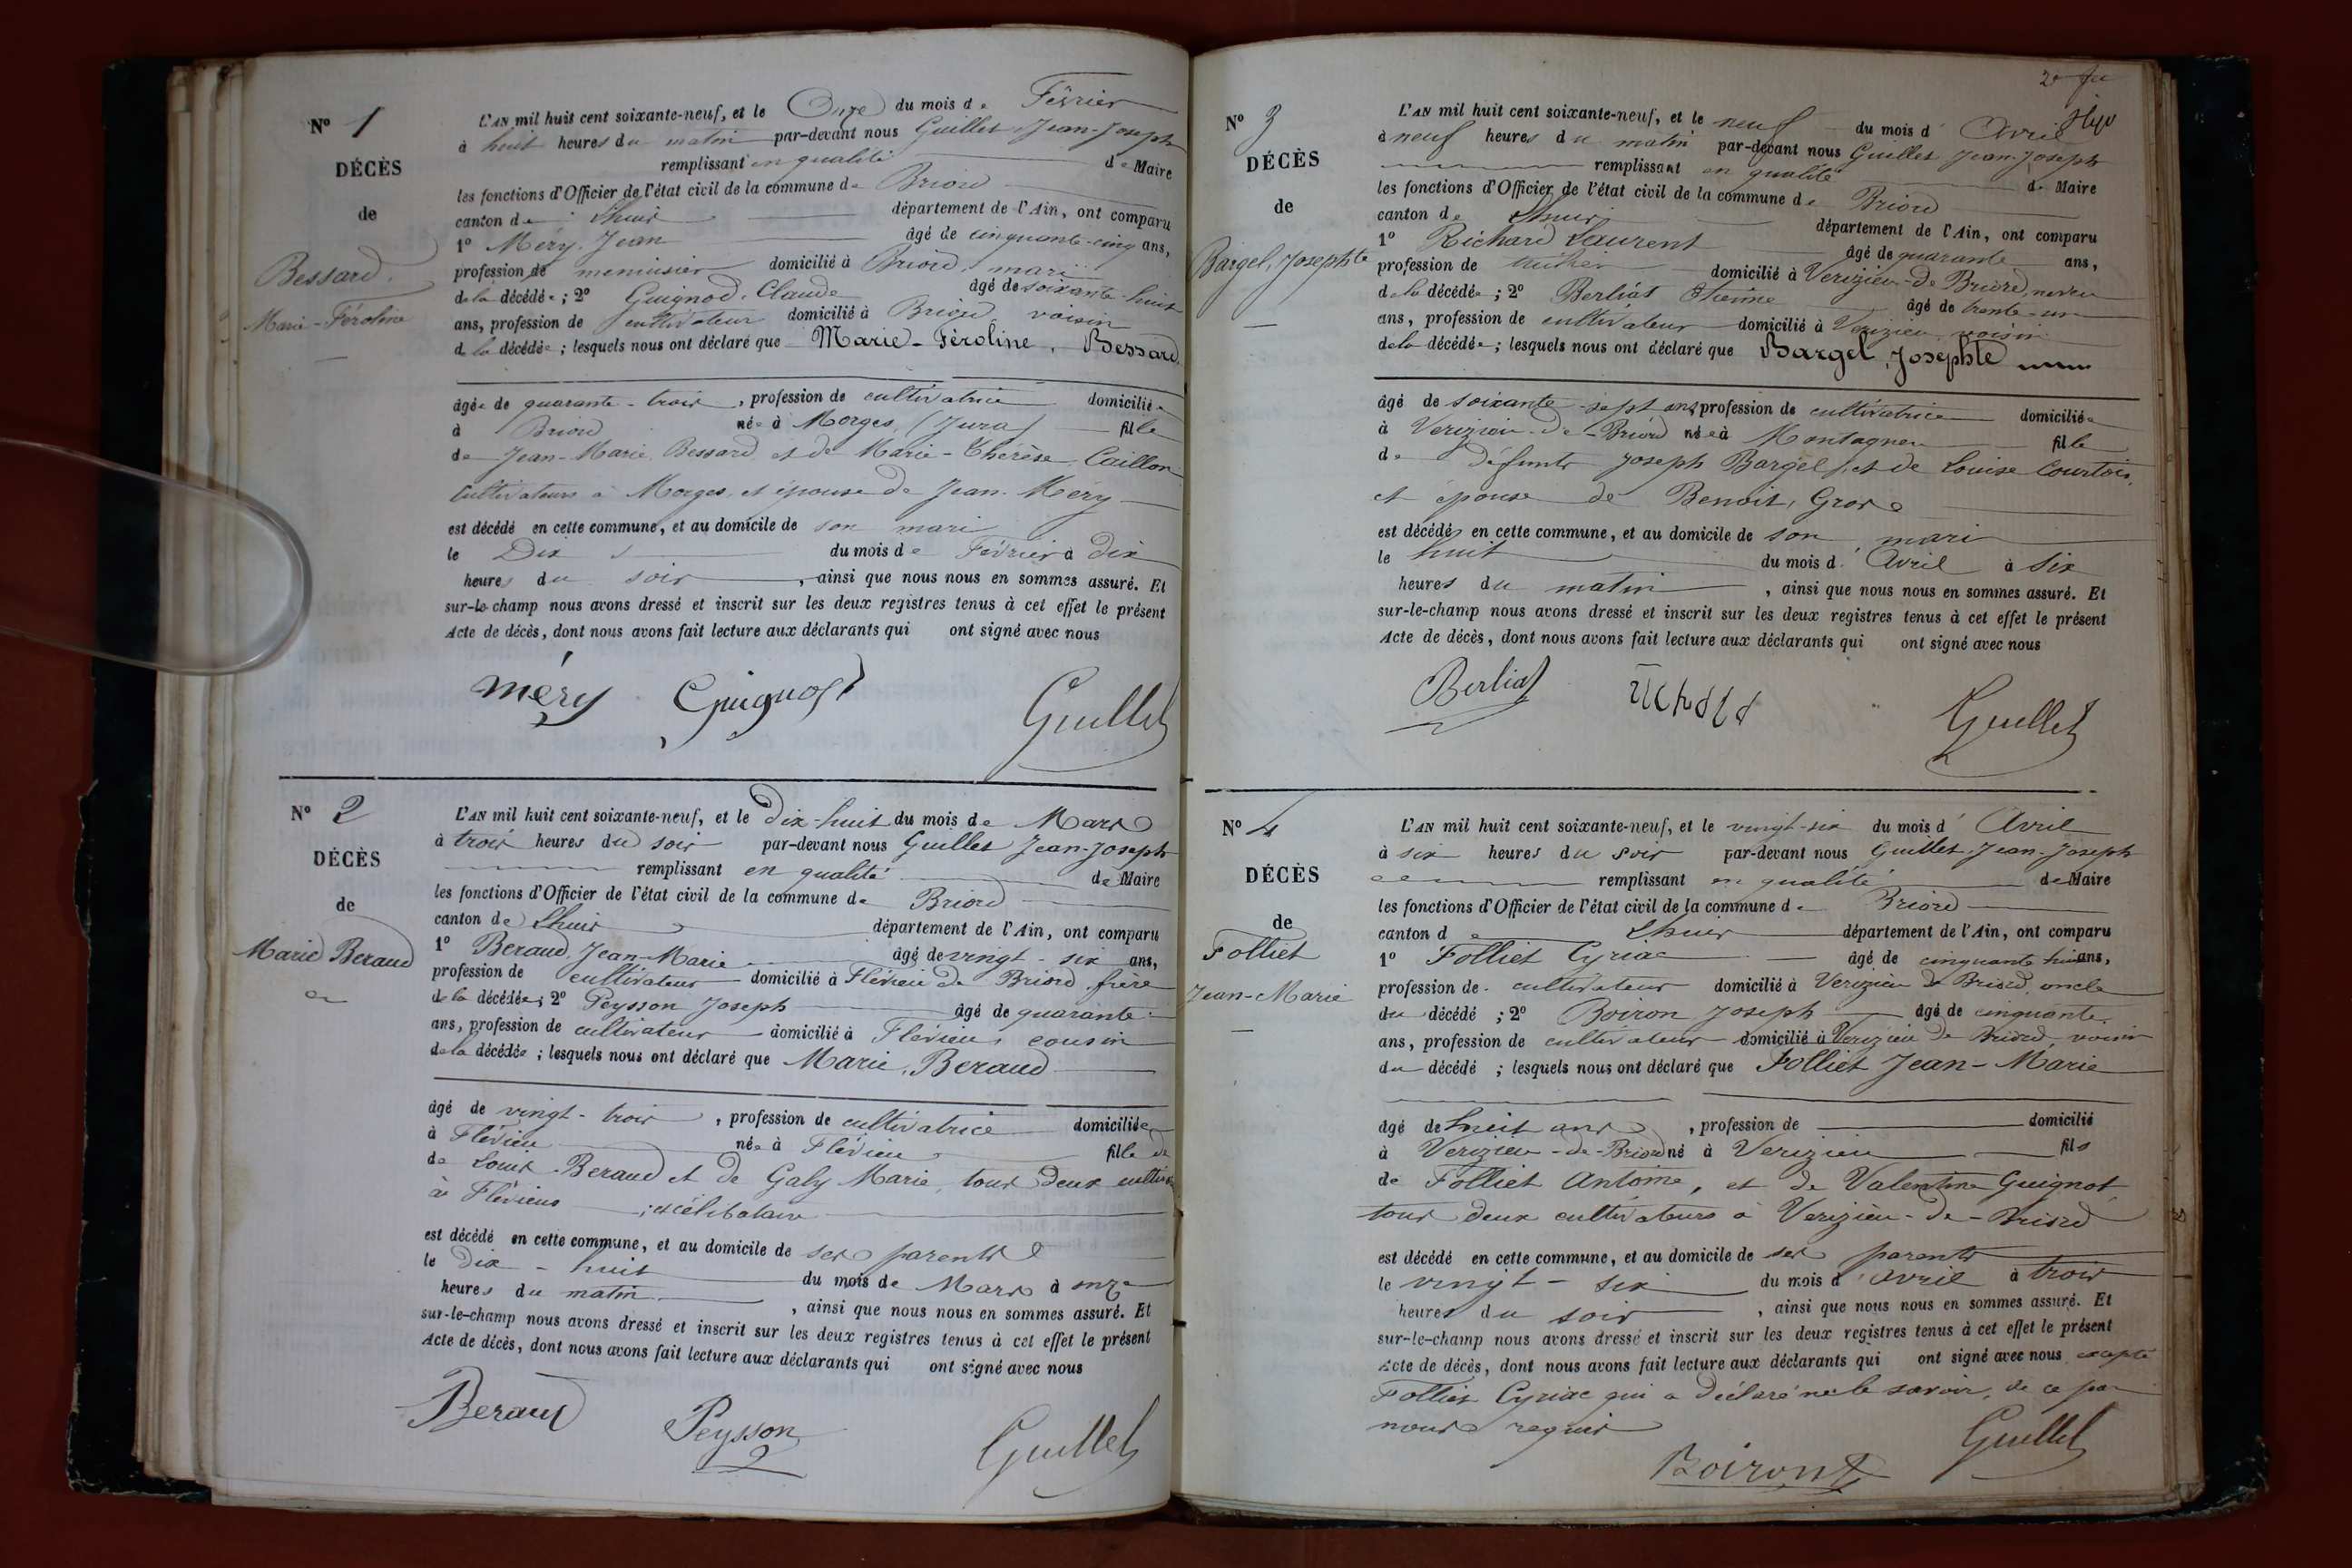 N° 1
DÉCÈS
de
Bessard.
Marie-Féroline
L'AN mil huit cent soixante-neuf, et le Onze du mois de Février
à huit heures du matin par-devant nous Guillet, Jean-Joseph
remplissant en qualité de Maire
les fonctions d'Officier de l'état civil de la commune de Briord
canton de Lhuis département de l'Ain, ont comparu
1° Méry, Jean âgé de cinquante-cinq ans,
profession de menuisier domicilié à Briord, mari
de la décédée; 2° Guignod, Claude âgé de soixante-huit
ans, profession de cultivateur domicilié à Briord, voisin
de la décédée; lesquels nous ont déclaré que Marie-Féroline, Bessard
âgée de quarante-trois, profession de cultivatrice domiciliée
à Briord née à Morges, (Jura) fille
de Jean-Marie, Bessard et de Marie-Thérèse, Caillon
Cultivateurs à Morges, et épouse de Jean Méry
est décédé en cette commune, et au domicile de son mari
le Dix du mois de Février à dix
heures du soir, ainsi que nous nous en sommes assuré. Et
sur-le-champ nous avons dressé et inscrit sur les deux registres tenus à cet effet le présent
Acte de décès, dont nous avons fait lecture aux déclarants qui ont signé avec nous
méry Guignod Guillet
N° 2
DÉCÈS
de
Marie Beraud
L'AN mil huit cent soixante-neuf, et le dix-huit du mois de Mars
à trois heures du soir par-devant nous Guillet Jean-Joseph
remplissant en qualité de Maire
les fonctions d'Officier de l'état civil de la commune de Briord
canton de Lhuis département de l'Ain, ont comparu
1° Beraud, Jean-Marie âgé de vingt-six ans,
profession de cultivateur domicilié à Flévieu de Briord, frère
de la décédée; 2° Peysson Joseph âgé de quarante
ans, profession de cultivateur domicilié à Flévieu, cousin
de la décédée; lesquels nous ont déclaré que Marie, Beraud
âgé de vingt-trois, profession de cultivatrice domiciliée
à Flévieu née à Flévieu fille de
de Louis Beraud et de Galy Marie, tous deux cultiv
à Flévieu; célibataire
est décédé en cette commune, et au domicile de ses parents
le dix-huit du mois de Mars à onze
heures du matin, ainsi que nous nous en sommes assuré. Et
sur-le-champ nous avons dressé et inscrit sur les deux registres tenus à cet effet le présent
Acte de décès, dont nous avons fait lecture aux déclarants qui ont signé avec nous
Beraud Peysson Guillet
N° 3
DÉCÈS
de
Bargel, Josephte
L'AN mil huit cent soixante-neuf, et le neuf du mois d'Avril
à neuf heures du matin par-devant nous Guillet Jean-Joseph
remplissant en qualité de Maire
les fonctions d'Officier de l'état civil de la commune de Briord
canton de Lhuis département de l'Ain, ont comparu
1° Richard Laurent âgé de quarante ans,
profession de domicilié à Verizieu-de-Briord, neveu
de la décédée; 2° Berliat Etienne âgé de trente-un
ans, profession de cultivateur domicilié à Verizieu, voisin
de la décédée; lesquels nous ont déclaré que Bargel, Josephte
âgé de soixante-sept ans, profession de cultivatrice domiciliée
à Verizieu-de-Briord née à Montagneu fille
de défunts Joseph Bargel, et de Louise Courtois,
et épouse de Benoit, Gros
est décédé en cette commune, et au domicile de son mari
le huit du mois d'Avril à six
heures du matin, ainsi que nous nous en sommes assuré. Et
sur-le-champ nous avons dressé et inscrit sur les deux registres tenus à cet effet le présent
Acte de décès, dont nous avons fait lecture aux déclarants qui ont signé avec nous
Berliat Guillet
N° 4
DÉCÈS
de
Folliet
Jean-Marie
L'AN mil huit cent soixante-neuf, et le vingt-six du mois d'Avril
à six heures du soir par-devant nous Guillet Jean-Joseph
remplissant en qualité de Maire
les fonctions d'Officier de l'état civil de la commune de Briord
canton de Lhuis département de l'Ain, ont comparu
1° Folliet Cyriac âgé de cinquante-huit ans,
profession de cultivateur domicilié à Verizieu de Briord, oncle
du décédé; 2° Boiron Joseph âgé de cinquante
ans, profession de cultivateur domicilié à Verizieu de Briord, voisin
du décédé; lesquels nous ont déclaré que Folliet Jean-Marie
âgé de huit ans, profession de domicilié
à Verizieu-de-Briord né à Verizieu fils
de Folliet Antoine, et de Valentine Guignot
tous deux cultivateurs à Verizieu-de-Briord
est décédé en cette commune, et au domicile de ses parents
le vingt-six du mois d'avril à trois
heures du soir, ainsi que nous nous en sommes assuré. Et
sur-le-champ nous avons dressé et inscrit sur les deux registres tenus à cet effet le présent
Acte de décès, dont nous avons fait lecture aux déclarants qui ont signé avec nous excepté
Folliet Cyriac qui a déclaré ne le savoir, de ce par
nous requis
Boiron Guillet